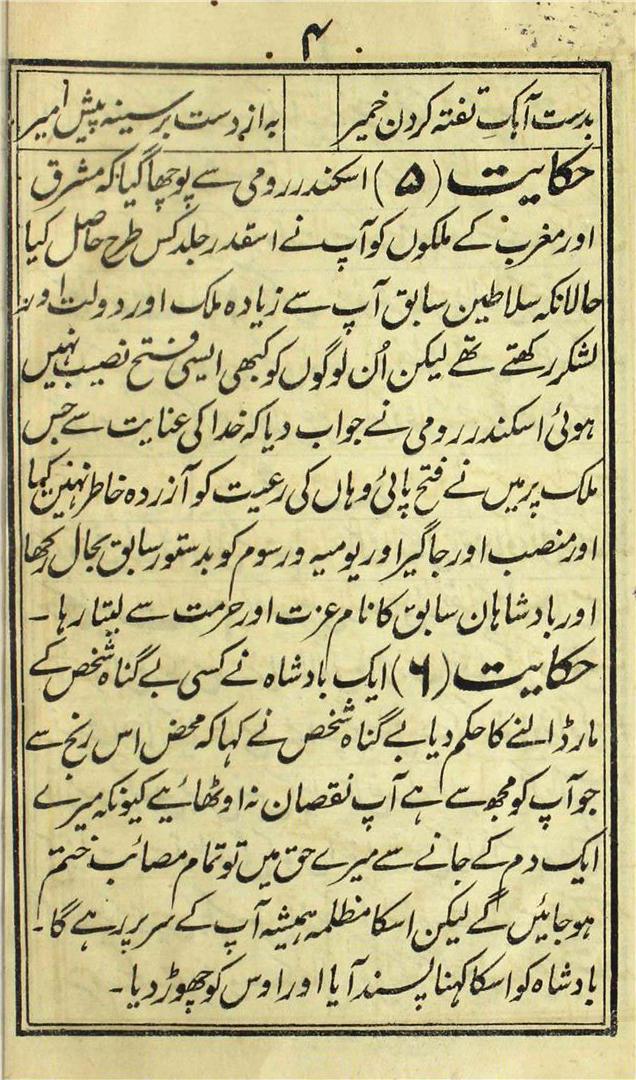 ۴
بدست آہک تفتہ کردن خمیر
بہ از دست بر سینہ پیش امیر
حکایت (۵) اسکندر رومی سے پوچھا گیا کہ مشرق
اور مغرب کے ملکوں کو آپ نے اسقدر جلد کس طرح حاصل کیا
حالانکہ سلاطین سابق آپ سے زیادہ ملک اور دولت اور
لشکر رکھتے تھے لیکن اُن لوگوں کو کبھی ایسی فتح نصیب نہیں
ہوئی اسکندر رومی نے جواب دیا کہ خدا کی عنایت سے جس
ملک پر میں نے فتح پائی وہاں کی رعیت کو آزردہ خاطر نہیں کیا
اور منصب اور جاگیر اور یومیہ و رسوم کو بدستور سابق بحال رکھا
اور بادشاہان سابق کا نام عزت اور حرمت سے لیتا رہا ۔
حکایت (۶) ایک بادشاہ نے کسی بے گناہ شخص کے
مار ڈالنے کا حکم دیا بے گناہ شخص نے کہا کہ محض اس رنج سے
جو آپ کو مجھ سے ہے آپ نقصان نہ اوٹھائیے کیونکہ میرے
ایک دم کے جانے سے میرے حق میں تو تمام مصائب ختم
ہو جائیں گے لیکن اسکا مظلمہ ہمیشہ آپ کے سر پر رہے گا ۔
بادشاہ کو اسکا کہنا پسند آیا اور اوس کو چھوڑ دیا ۔